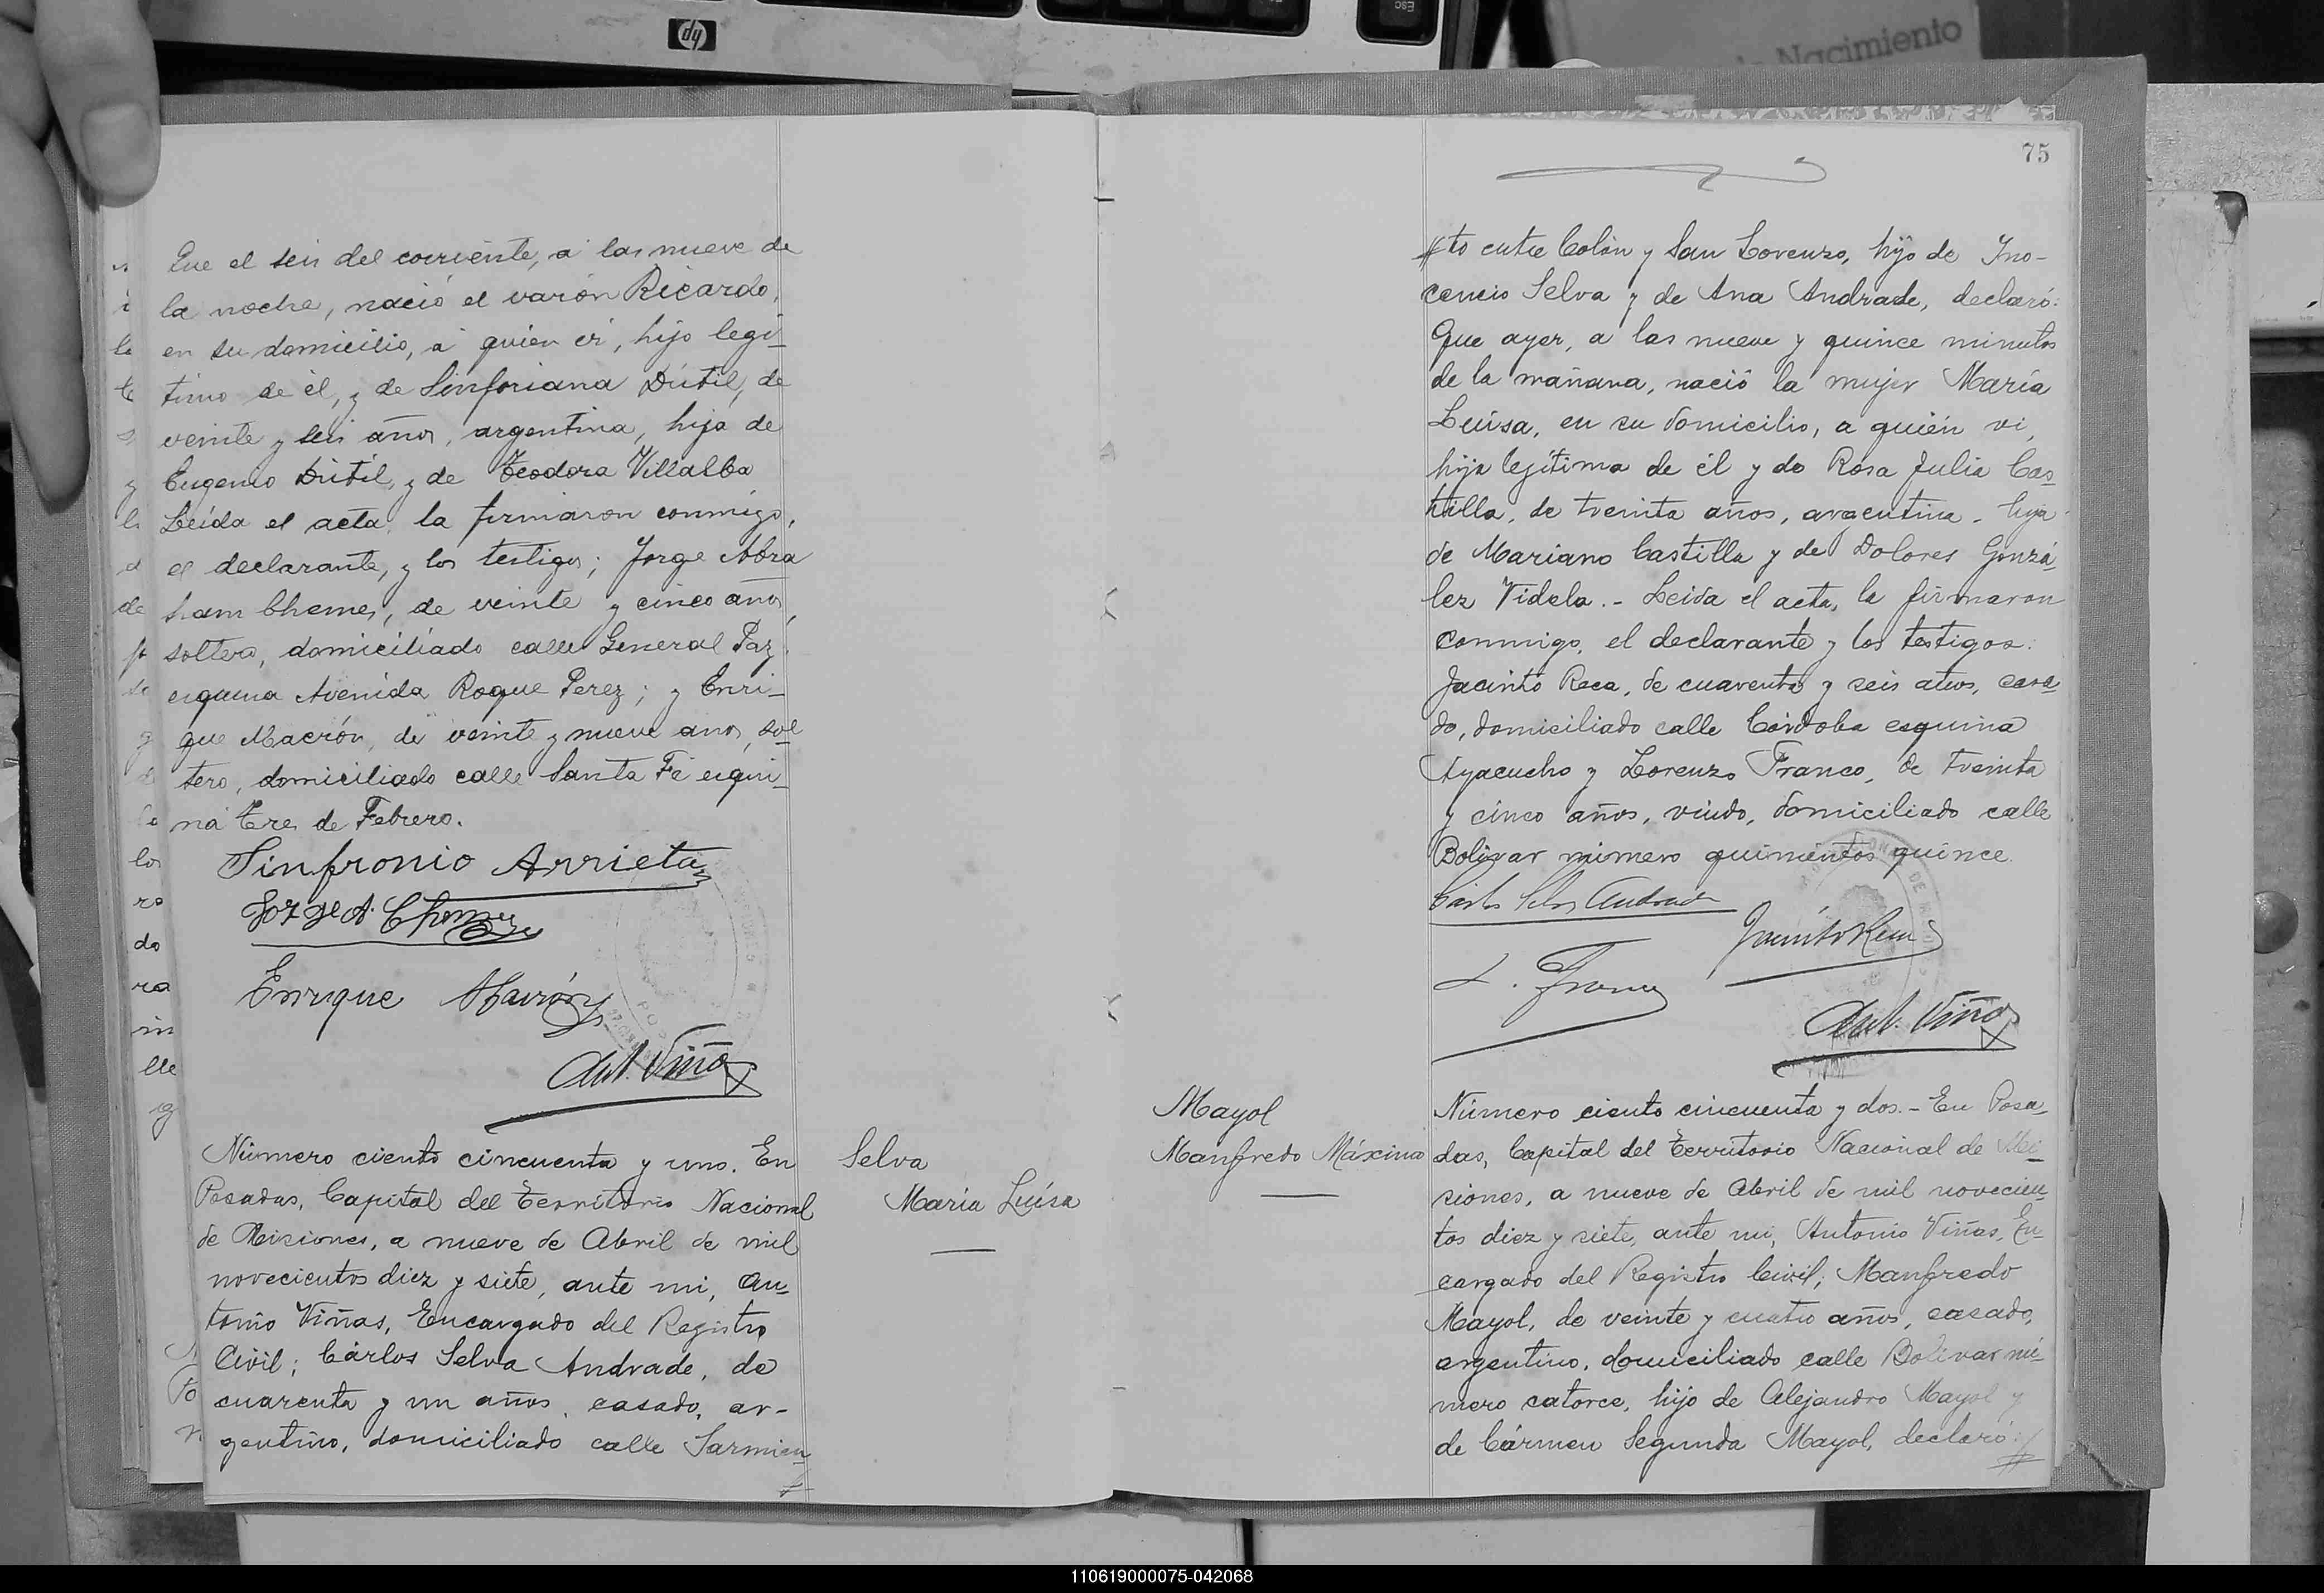 hp
ESC
Nacimiento
Que el seis del corriente, a las nueve de
la noche, nació el varón Ricardo,
en su domicilio, a quien vi, hijo legi-
timo de él, y de Sinforiana Dútil, de
veinte y seis años, argentina, hija de
Eugenio Dútil, y de Teodora Villalba
Leída el acta, la firmaron conmigo,
el declarante, y los testigos; Jorge Abra
ham Chemes, de veinte y cinco años,
soltero, domiciliado calle General Paz
esquina Avenida Roque Perez; y Enri-
que Macrón, de veinte y nueve anos, sol
tero, domiciliado calle Santa Fé esqui-
na Tres de Febrero.
Sinfronio Arrieta
Jorge A. Chemes
Enrique Macrón
Ant. Viñas
Número ciento cincuenta y uno. En
Posadas, Capital del Territorio Nacional
de Misiones, a nueve de Abril de mil
novecientos diez y siete, ante mi, An-
tonio Viñas, Encargado del Registro
Civil; Cárlos Selva Andrade, de
cuarenta y un años, casado, ar-
gentino, domiciliado calle Sarmien-
Selva
María Luísa
75
to entre Colón y San Lorenzo, hijo de Ino-
cencio Selva y de Ana Andrade, declaró:
Que ayer, a las nueve y quince minutos
de la mañana, nació la mujer María
Luísa, en su domicilio, a quién vi,
hija legítima de él y de Rosa Julia Cas-
tilla, de treinta años, argentina, hija
de Mariano Castilla y de Dolores Gonzá-
lez Videla.- Leida el acta, la firmaron
conmigo, el declarante y los testigos:
Jacinto Roca, de cuarenta y seis años, casa-
do, domiciliado calle Córdoba esquina
Ayacucho y Lorenzo Franco, de treinta
y cinco años, viudo, domiciliado calle
Bolívar número quinientos quince.
Carlos Selva Andrade
L. Franco
Ant. Viñas
Mayol
Manfredo Máximo
Número ciento cincuenta y dos.- En Posa-
das, Capital del Territorio Nacional de Mi-
siones, a nueve de Abril de mil novecien-
tos diez y siete, ante mi, Antonio Viñas, En-
cargado del Registro Civil; Manfredo
Mayol, de veinte y cuatro años, casado,
argentino, domiciliado calle Bolívar nú-
mero catorce, hijo de Alejandro Mayol y
de Cármen Segunda Mayol, declaró:
110619000075-042068